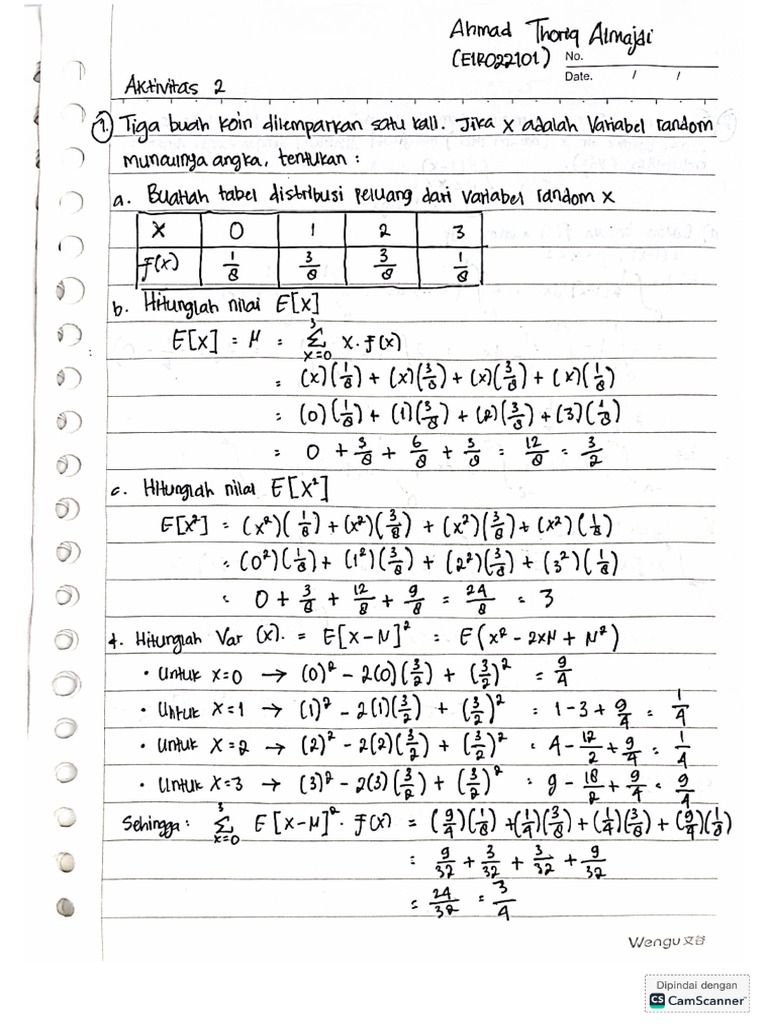 Ahmad Thoriq Almajdi
(E1R022101) No.
Date. / /
Aktivitas 2
1. Tiga buah koin dilemparkan satu kali. Jika X adalah Variabel random
munculnya angka, tentukan :
a. Buatlah tabel distribusi peluang dari variabel random X
X 0 1 2 3
f(x) 1/8 3/8 3/8 1/8
b. Hitunglah nilai E[X]
E[X] = μ = 3 Σ x=0 x. f(x)
= (x)(1/8) + (x)(3/8) + (x)(3/8) + (x)(1/8)
= (0)(1/8) + (1)(3/8) + (2)(3/8) + (3)(1/8)
= 0 + 3/8 + 6/8 + 3/8 = 12/8 = 3/2
c. Hitunglah nilai E[X²]
E[X²] = (x²)(1/8) + (x²)(3/8) + (x²)(3/8) + (x²)(1/8)
= (0²)(1/8) + (1²)(3/8) + (2²)(3/8) + (3²)(1/8)
= 0 + 3/8 + 12/8 + 9/8 = 24/8 = 3
4. Hitunglah Var (x). = E[X-μ]² = E(x² - 2xμ + μ²)
• Untuk x=0 → (0)² - 2(0)(3/2) + (3/2)² = 9/4
• Untuk x=1 → (1)² - 2(1)(3/2) + (3/2)² = 1-3+9/4 = 1/4
• Untuk x=2 → (2)² - 2(2)(3/2) + (3/2)² = 4-12/2+9/4 = 1/4
• Untuk x=3 → (3)² - 2(3)(3/2) + (3/2)² = 9-18/2+9/4 = 9/4
Sehingga : 3 Σ x=0 E[X-μ]². f(x) = (9/4)(1/8) + (1/4)(3/8) + (1/4)(3/8) + (9/4)(1/8)
= 9/32 + 3/32 + 3/32 + 9/32
= 24/32 = 3/4
Wengu 文谷
Dipindai dengan
CS CamScanner